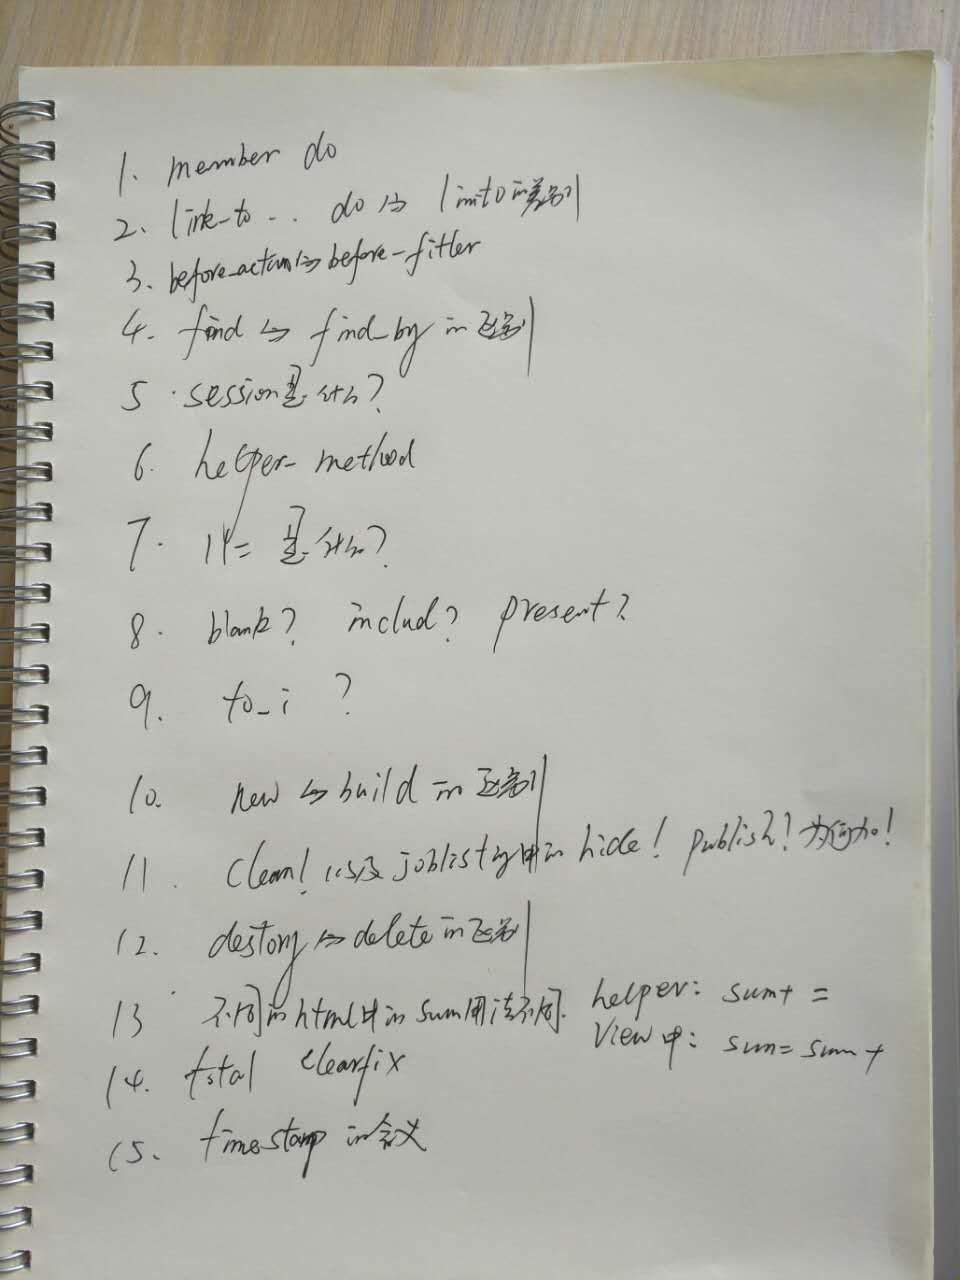 1. member do
2. link-to ... do 与 linkto的差别
3. before-action与before-fitler
4. find 与 find_by 的区别
5. session是什么?
6. helper-method
7. ||= 是什么?
8. blank? includ? present?
9. to_i ?
10. new 与 build 的区别
11. clean! 以及 joblisting中的 hide! publish! 为何加!
12. destory 与 delete 的区别
13 不同的html中的sum用法不同. helper: sum+ =
View中: sum= sum +
14. total clearfix
15. timestamp 的含义